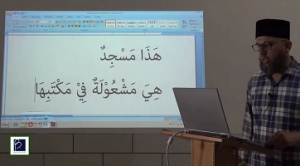 هَذَا مَسْجِدٌ
هِيَ مَشْغُوْلَةٌ فِيْ مَكْتَبِهَا